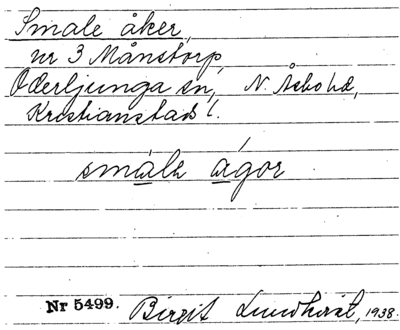 Smale åker,
nr 3 Månstorp,
Oderljunga sn, N. Åsbo hd,
Kristianstads l.
smálh ágor
Nr 5499. Birgit Lundkvist, 1938.